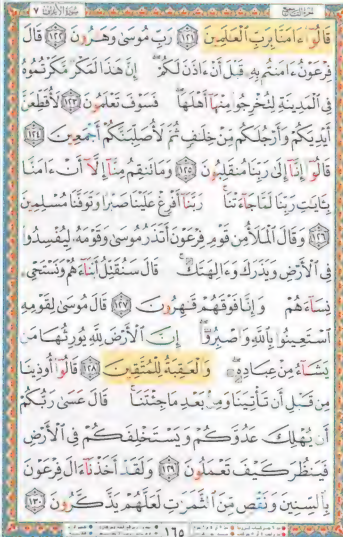 سورة الأعراف ٧
قَالُوٓا۟ ءَامَنَّا بِرَبِّ ٱلْعَٰلَمِينَ ١٢١ رَبِّ مُوسَىٰ وَهَٰرُونَ ١٢٢ قَالَ
فِرْعَوْنُ ءَامَنتُم بِهِۦ قَبْلَ أَنْ ءَاذَنَ لَكُمْ إِنَّ هَٰذَا لَمَكْرٌ مَّكَرْتُمُوهُ
فِى ٱلْمَدِينَةِ لِتُخْرِجُوا۟ مِنْهَآ أَهْلَهَا فَسَوْفَ تَعْلَمُونَ ١٢٣ لَأُقَطِّعَنَّ
أَيْدِيَكُمْ وَأَرْجُلَكُم مِّنْ خِلَٰفٍ ثُمَّ لَأُصَلِّبَنَّكُمْ أَجْمَعِينَ ١٢٤
قَالُوٓا۟ إِنَّآ إِلَىٰ رَبِّنَا مُنقَلِبُونَ ١٢٥ وَمَا تَنقِمُ مِنَّآ إِلَّآ أَنْ ءَامَنَّا
بِـَٔايَٰتِ رَبِّنَا لَمَّا جَآءَتْنَا رَبَّنَآ أَفْرِغْ عَلَيْنَا صَبْرًا وَتَوَفَّنَا مُسْلِمِينَ
١٢٦ وَقَالَ ٱلْمَلَأُ مِن قَوْمِ فِرْعَوْنَ أَتَذَرُ مُوسَىٰ وَقَوْمَهُۥ لِيُفْسِدُوا۟
فِى ٱلْأَرْضِ وَيَذَرَكَ وَءَالِهَتَكَ قَالَ سَنُقَتِّلُ أَبْنَآءَهُمْ وَنَسْتَحْىِۦ
نِسَآءَهُمْ وَإِنَّا فَوْقَهُمْ قَٰهِرُونَ ١٢٧ قَالَ مُوسَىٰ لِقَوْمِهِ
ٱسْتَعِينُوا۟ بِٱللَّهِ وَٱصْبِرُوٓا۟ إِنَّ ٱلْأَرْضَ لِلَّهِ يُورِثُهَا مَن
يَشَآءُ مِنْ عِبَادِهِۦ وَٱلْعَٰقِبَةُ لِلْمُتَّقِينَ ١٢٨ قَالُوٓا۟ أُوذِينَا
مِن قَبْلِ أَن تَأْتِيَنَا وَمِنۢ بَعْدِ مَا جِئْتَنَا قَالَ عَسَىٰ رَبُّكُمْ
أَن يُهْلِكَ عَدُوَّكُمْ وَيَسْتَخْلِفَكُمْ فِى ٱلْأَرْضِ
فَيَنظُرَ كَيْفَ تَعْمَلُونَ ١٢٩ وَلَقَدْ أَخَذْنَآ ءَالَ فِرْعَوْنَ
بِٱلسِّنِينَ وَنَقْصٍ مِّنَ ٱلثَّمَرَٰتِ لَعَلَّهُمْ يَذَّكَّرُونَ ١٣٠
١٦٥